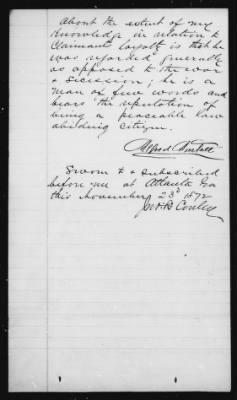 about the extent of my
Knowledge in relation to
Claimants loyalty is that he
was regarded generally
as opposed to the war
& Secession; he is a
man of few words and
bears the reputation of
being a peaceable law
abiding citizen.
Alfred
Sworn to & subscribed
before me at Atlanta Ga
this November 23d 1872
Conley